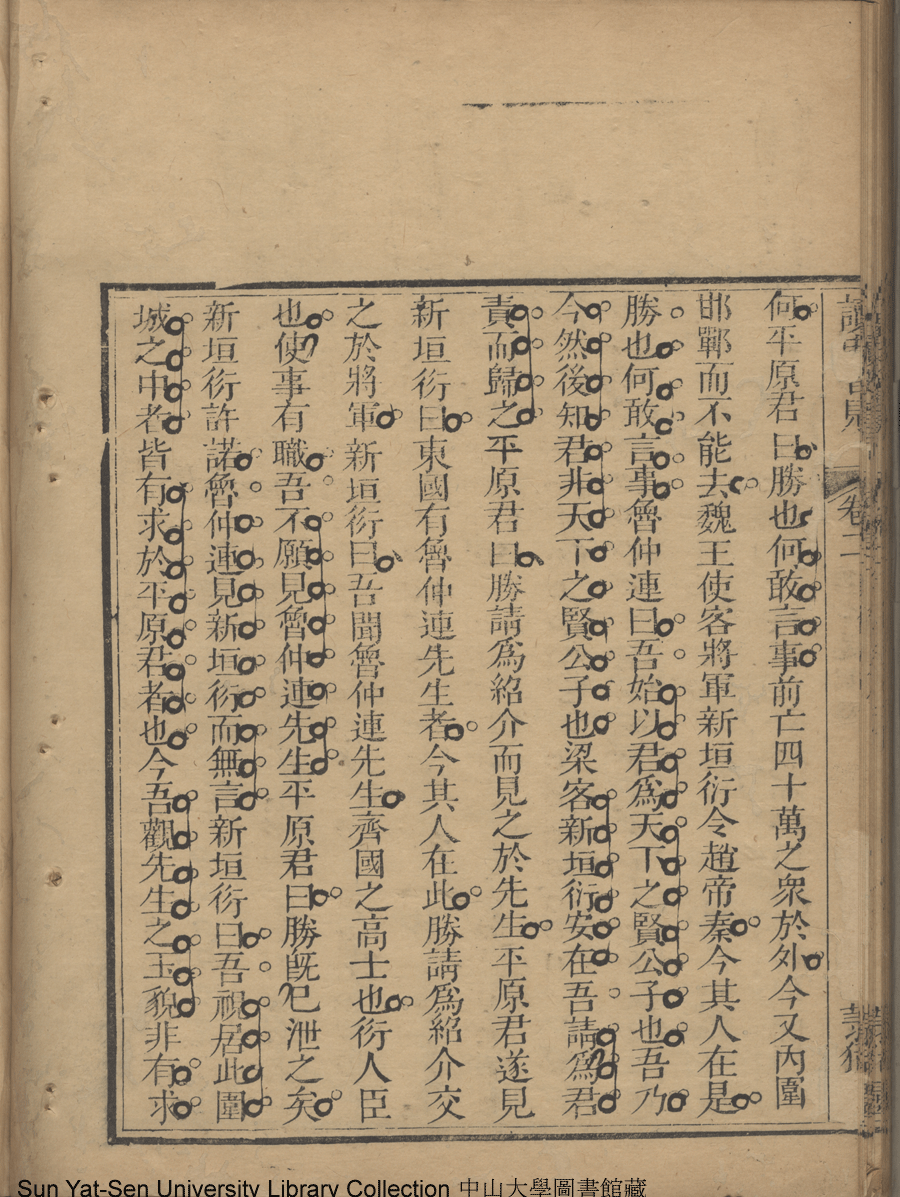 何平原君曰勝也何敢言事前亡四十萬之衆於外今又內圍
邯鄲而不能去魏王使客將軍新垣衍令趙帝秦今其人在是
勝也何敢言事魯仲連曰吾始以君爲天下之賢公子也吾乃
今然後知君非天下之賢公子也梁客新垣衍安在吾請爲君
責而歸之平原君曰勝請爲紹介而見之於先生平原君遂見
新垣衍曰東國有魯仲連先生者今其人在此勝請爲紹介交
之於將軍新垣衍曰吾聞魯仲連先生齊國之高士也衍人臣
也使事有職吾不願見魯仲連先生平原君曰勝旣已泄之矣
新垣衍許諾魯仲連見新垣衍而無言新垣衍曰吾視居此圍
城之中者皆有求於平原君者也今吾觀先生之玉貌非有求
卷二
Sun Yat-Sen University Library Collection 中山大學圖書館藏